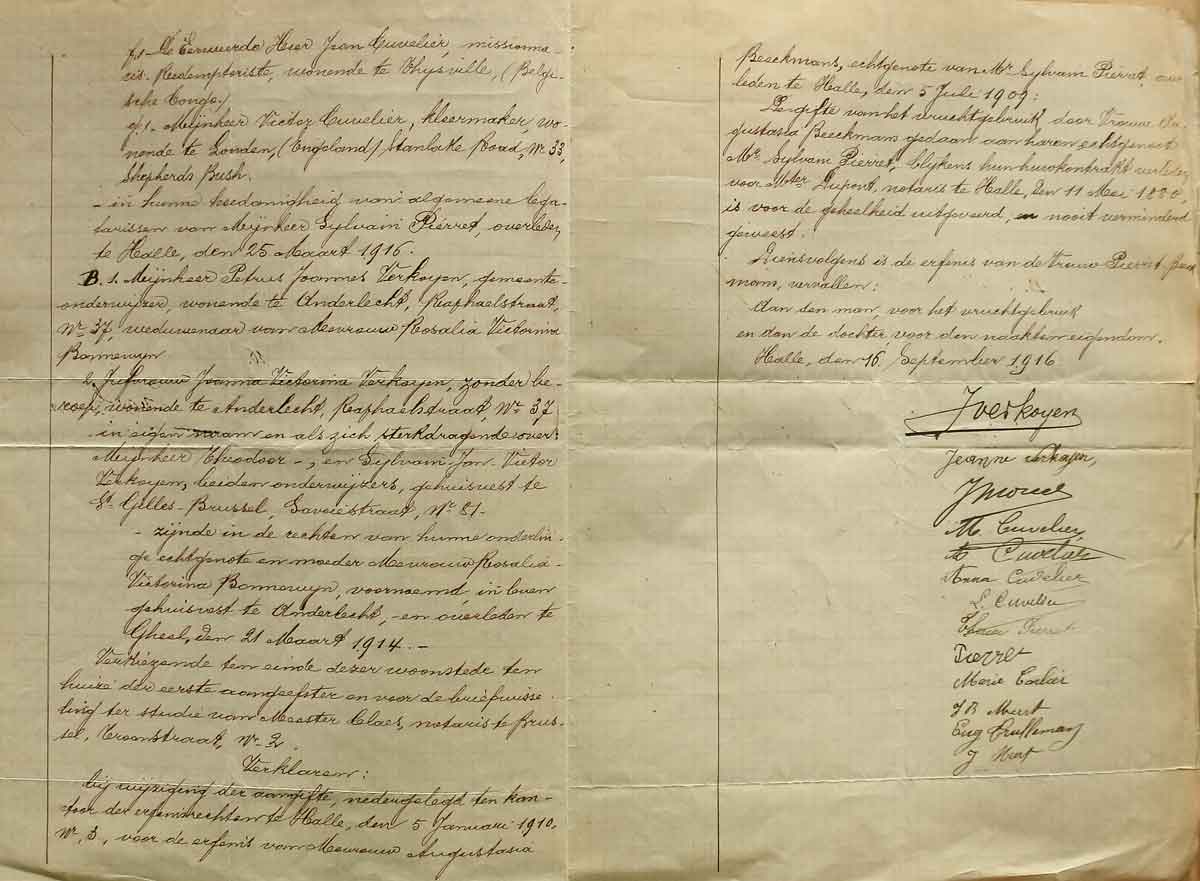 f.- De Eerweerde Heer Jean Cuvelier, missionna-
ris-Redemptoriste, wonende te Thysville, (Belgi-
sche Congo)
g.- Mijnheer Victor Cuvelier, kleermaker, wo-
nende te Londen, (Engeland) Stanlake Road, Nr 33,
Shepherds Bush.
- in hunne hoedanigheid van algemeene lega-
tarissen van Mijnheer Sylvain Pierret, overleden
te Halle, den 25 Maart 1916.
B. 1. Mijnheer Petrus Joannes Verkoyen, gemeente-
onderwijzer, wonende te Anderlecht, Raphaelstraat,
Nr 37, weduwenaar van Mevrouw Rosalia Victorina
Bonnewyn
2. Juforouw Joanna Victorina Verkoyen, zonder be-
roep, wonende te Anderlecht, Raphaelstraat, Nr 37
in eigen naam en als zich sterkdragende over
Mijnheer Theodoor -, en Sylvain Jan Victor
Verkoyen, beiden onderwijzers, gehuisvest te
St Gilles-Brussel, Savoiestraat, Nr 81-
- zijnde in de rechten van hunne onderlin-
ge echtgenote en moeder Mevrouw Rosalia-
Victorina Bonnewyn, voornoemd, in leven
gehuisvest te Anderlecht, - en overleden te
Gheel, den 21 Maart 1914. -
Verkiezende ten einde dezer woonstede ten
huize der eerste aangeefster en voor de briefwisse-
ling ter studie van Meester Claes, notaris te Brus-
sel, Troonstraat, Nr 2.
Verklaren:
bij wijziging der aangifte, nedergelegd ten kan-
toor der erfenisrechten te Halle, den 5 Januari 1910,
Nr 3, voor de erfenis van Mevrouw Augustasia
Beeckmans, echtgenote van Mr Sylvain Pierret, over
leden te Halle, den 5 Juli 1909:
De gifte van het vruchtgebruik door Vrouw Au-
gustasia Beeckmans gedaan aan haren echtgenoot
Mr Sylvain Pierret, blijkens hun huwkontrakt verleden
voor Mter Dupont, notaris te Halle, den 11 Mei 1880,
is voor de geheelheid uitgevoerd, en nooit verminderd
geweest.
Diensvolgens is de erfenis van de Vrouw Pierret-Beeck
mans, vervallen:
Aan den man, voor het vruchtgebruik
en aan de dochter, voor den naakten eigendom.
Halle, den 16 September 1916
J Verkoyen
Jeanne Verkoyen,
M. Cuvelier
Cuvelier
Anna Cuvelier
L. Cuvelier
Pierret
Pierret
Marie Carlier
J B
Eug
J